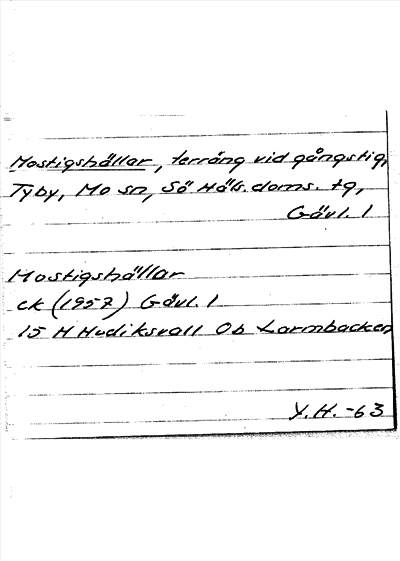 Mostigshällar, terräng vid gångstig,
Tyby, Mo sn, Sö Häls. doms. tg,
Gävl. l
Mostigshällar
ek (1957) Gävl. l
15 H Hudiksvall Ob Larmbacken
Y.H. -63